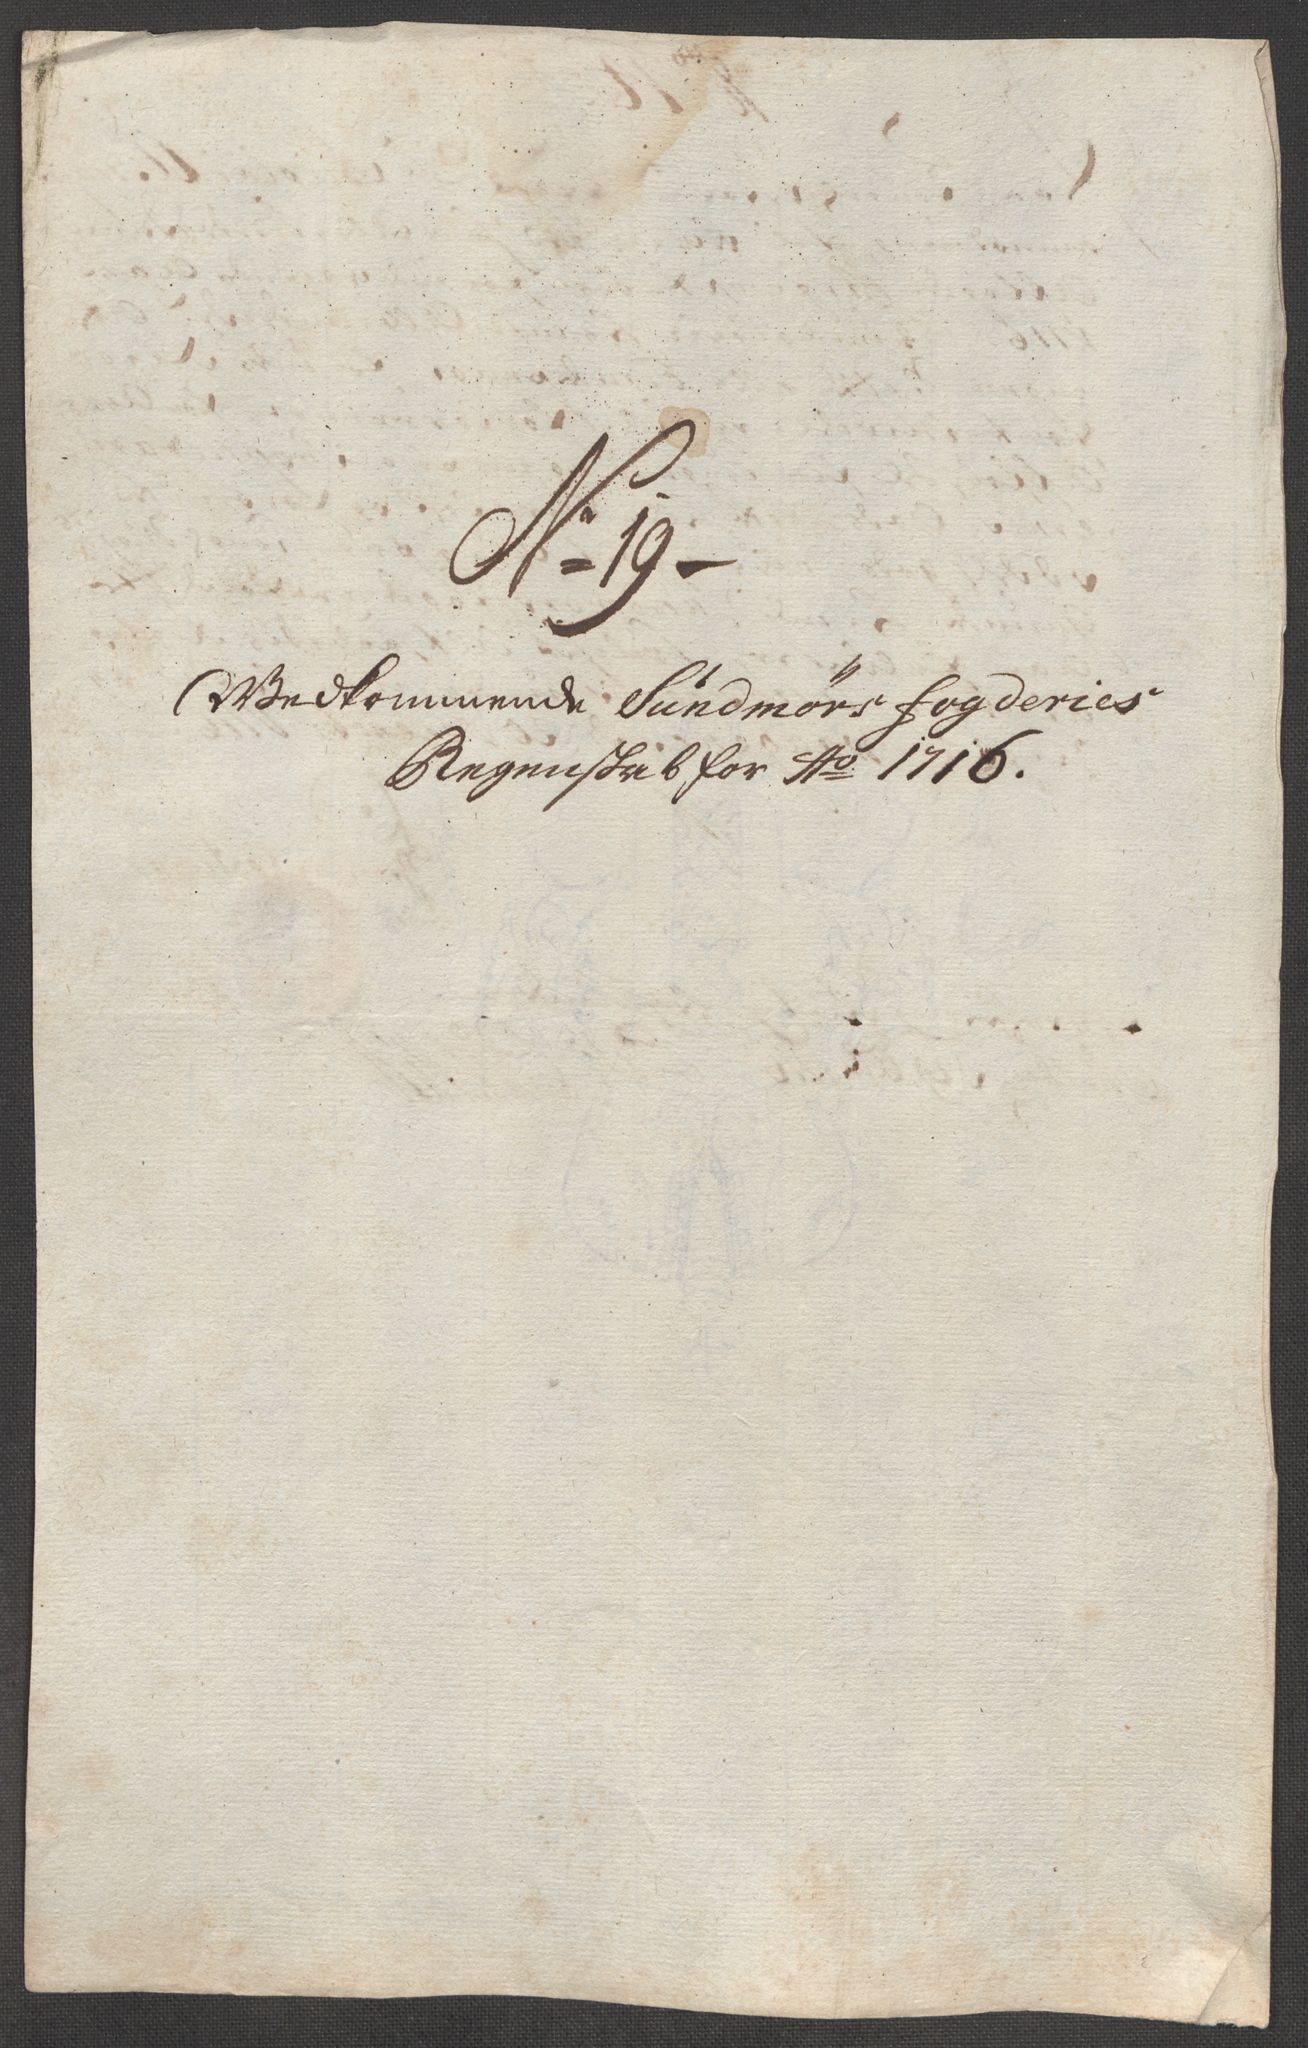 No 19-
Wedkommende Sundmørs fogderies
Regenskab for Ao 1716.